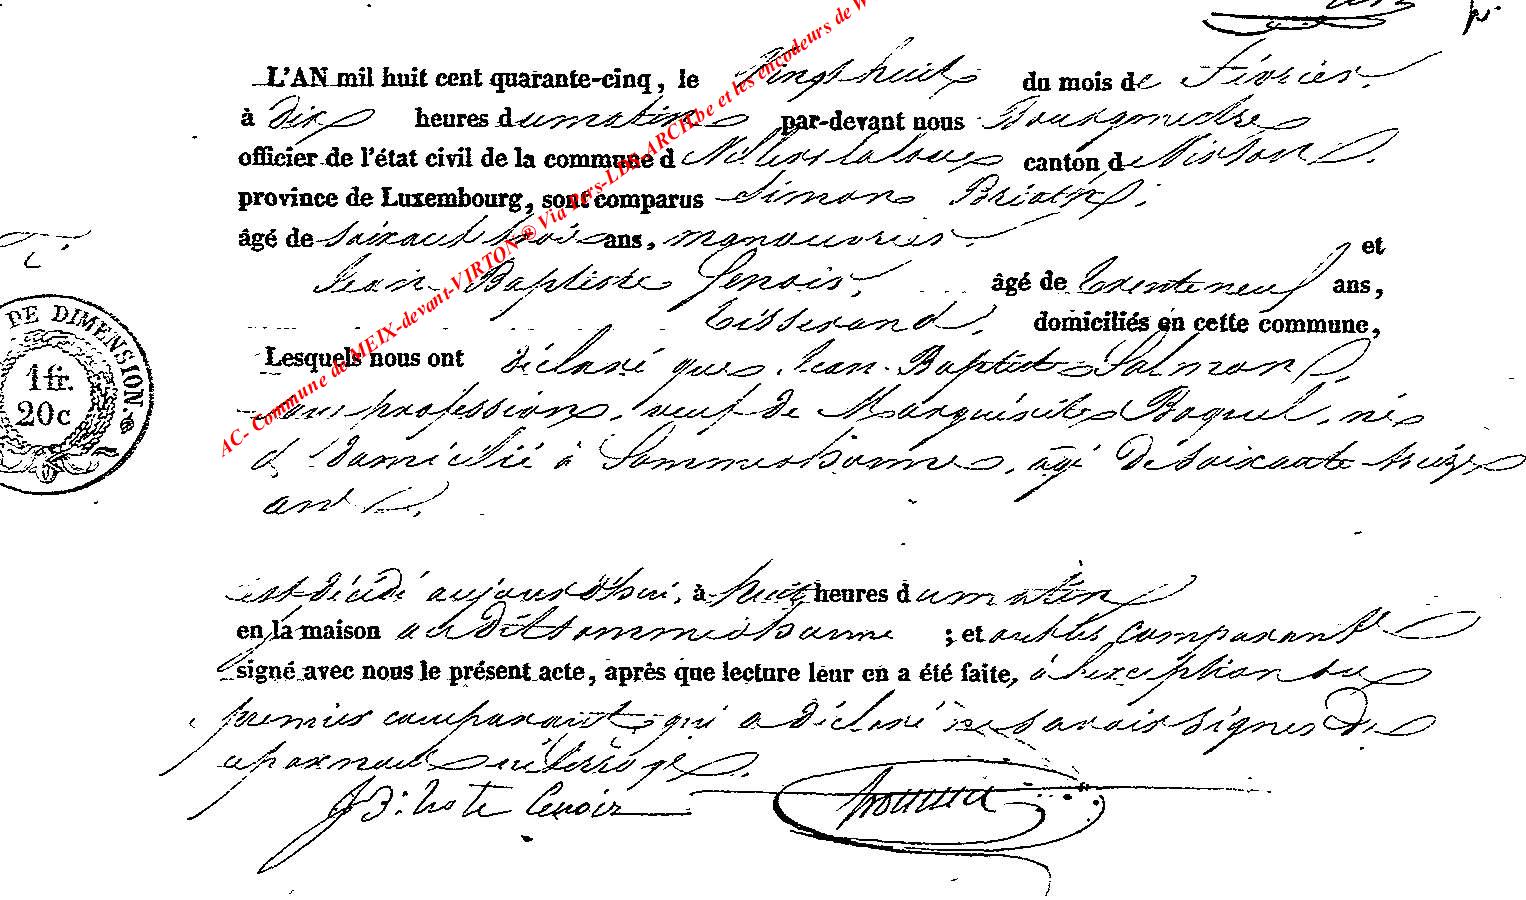 L'AN mil huit cent quarante-cinq, le Vingt huit du mois de Février
à dix heures du matin par-devant nous Bourgmestre
officier de l'état civil de la commune d canton de Virton.
province de Luxembourg, sont comparus Simon
âgé de soixante trois ans, manouvrier. et
Jean Baptiste Lenoir, âgé de trente neuf ans,
tisserand, domiciliés en cette commune,
Lesquels nous ont déclaré que Jean-Baptiste Salmon
sans profession, veuf de Marguérite né
et domicilié à Sommethonne, âgé de soixante treize
ans.
est décédé aujourd'hui, à huit heures du matin
en la maison au dit Sommethonne ; et ont les comparants
signé avec nous le présent acte, après que lecture leur en a été faite, à l'exception du
premier comparant qui a déclaré ne savoir signer de
ce par nous interrogé.
J B: te Lenoir
DE DIMENSION.
1 fr.
20c
AC- Commune de MEIX-devant-VIRTON ® Via Pers-LDE-ARCH.be et les encodeurs de